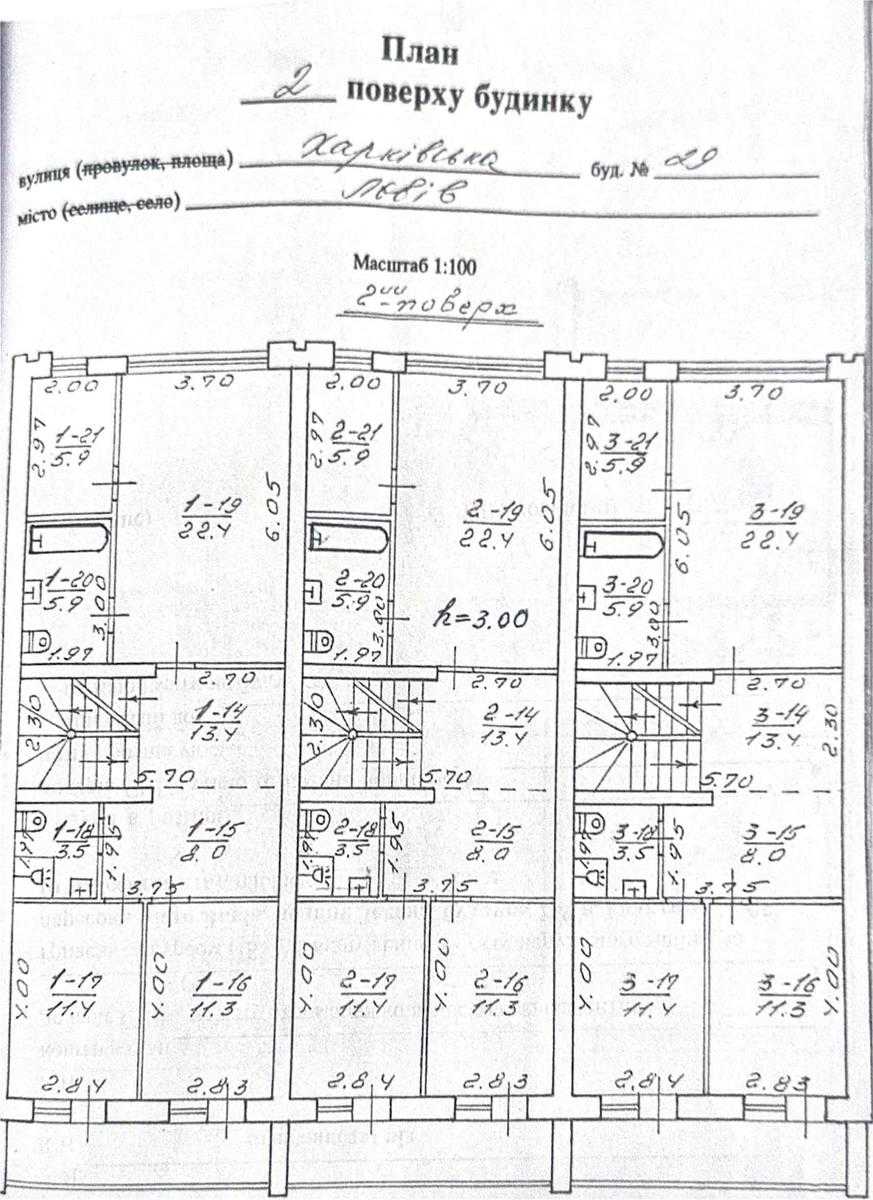 План
2 поверху будинку
вулиця (провулок, площа) Харківська буд. № 29
місто (селище, село) Львів
Масштаб 1:100
2ий поверх
2.00 3.70 2.00 3.70 2.00 3.70
2.97 1-21 5.9 2.97 2-21 5.9 2.97 3-21 5.9
1-19 22.4 6.05 2-19 22.4 6.05 6.05 3-19 22.4
1-20 5.9 3.00 2-20 5.9 3.00 h=3.00 3-20 5.9 3.00
1.97 1.97 1.97
2.70 2.70 2.70
2.30 1-14 13.4 2.30 2-14 13.4 3-14 13.4 2.30
5.70 5.70 5.70
1-18 3.5 1.95 1-15 8.0 2-18 3.5 1.95 2-15 8.0 3-18 3.5 1.95 3-15 8.0
1.97 1.97 1.97
3.75 3.75 3.75
4.00 1-17 11.4 4.00 1-16 11.3 4.00 2-17 11.4 4.00 2-16 11.3 4.00 3-17 11.4 3-16 11.3 4.00
2.84 2.83 2.84 2.83 2.84 2.83